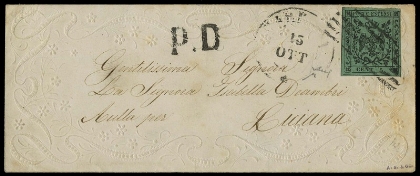 P.D
15
OTT
Gentilissima Signora
La Signora Isabella Dicambri
Aulla per
Luciana